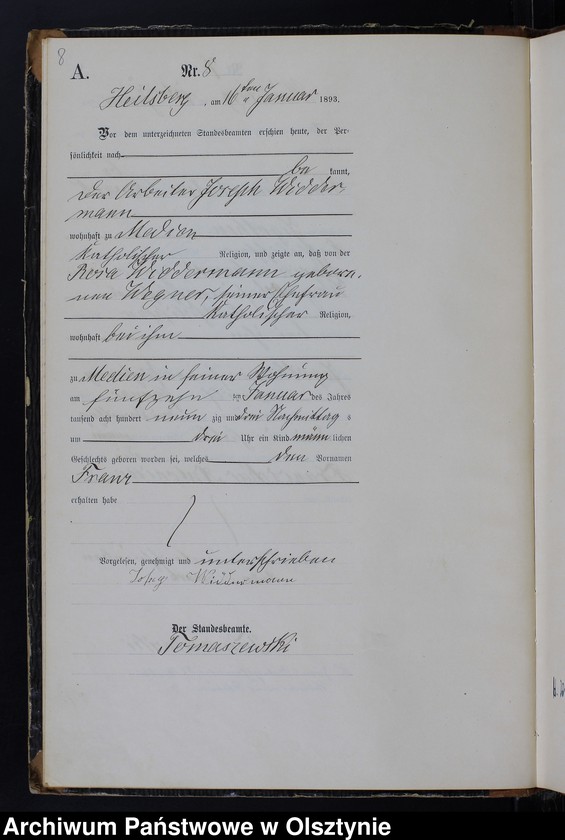 8
A. Nr. 8
Heilsberg, am 16ten Januar 1893.
Vor dem unterzeichneten Standesbeamten erschien heute, der Per-
sönlichkeit nach
be kannt,
der Arbeiter Joseph Widder-
mann
wohnhaft zu Medien
Katholischer Religion, und zeigte an, daß von der
Rosa Widdermann gebore-
nen Wegner, seiner Ehefrau
Katholischer Religion,
wohnhaft bei ihm
zu Medien in seiner Wohnung
am fünfzehn ten Januar des Jahres
tausend acht hundert neun zig und drei Nachmittag s
um drei Uhr ein Kind männ lichen
Geschlechts geboren worden sei, welches den Vornamen
Franz
erhalten habe
Vorgelesen, genehmigt und unterschrieben
Widdermann
Der Standesbeamte.
Tomaszewski
Archiwum Państwowe w Olsztynie